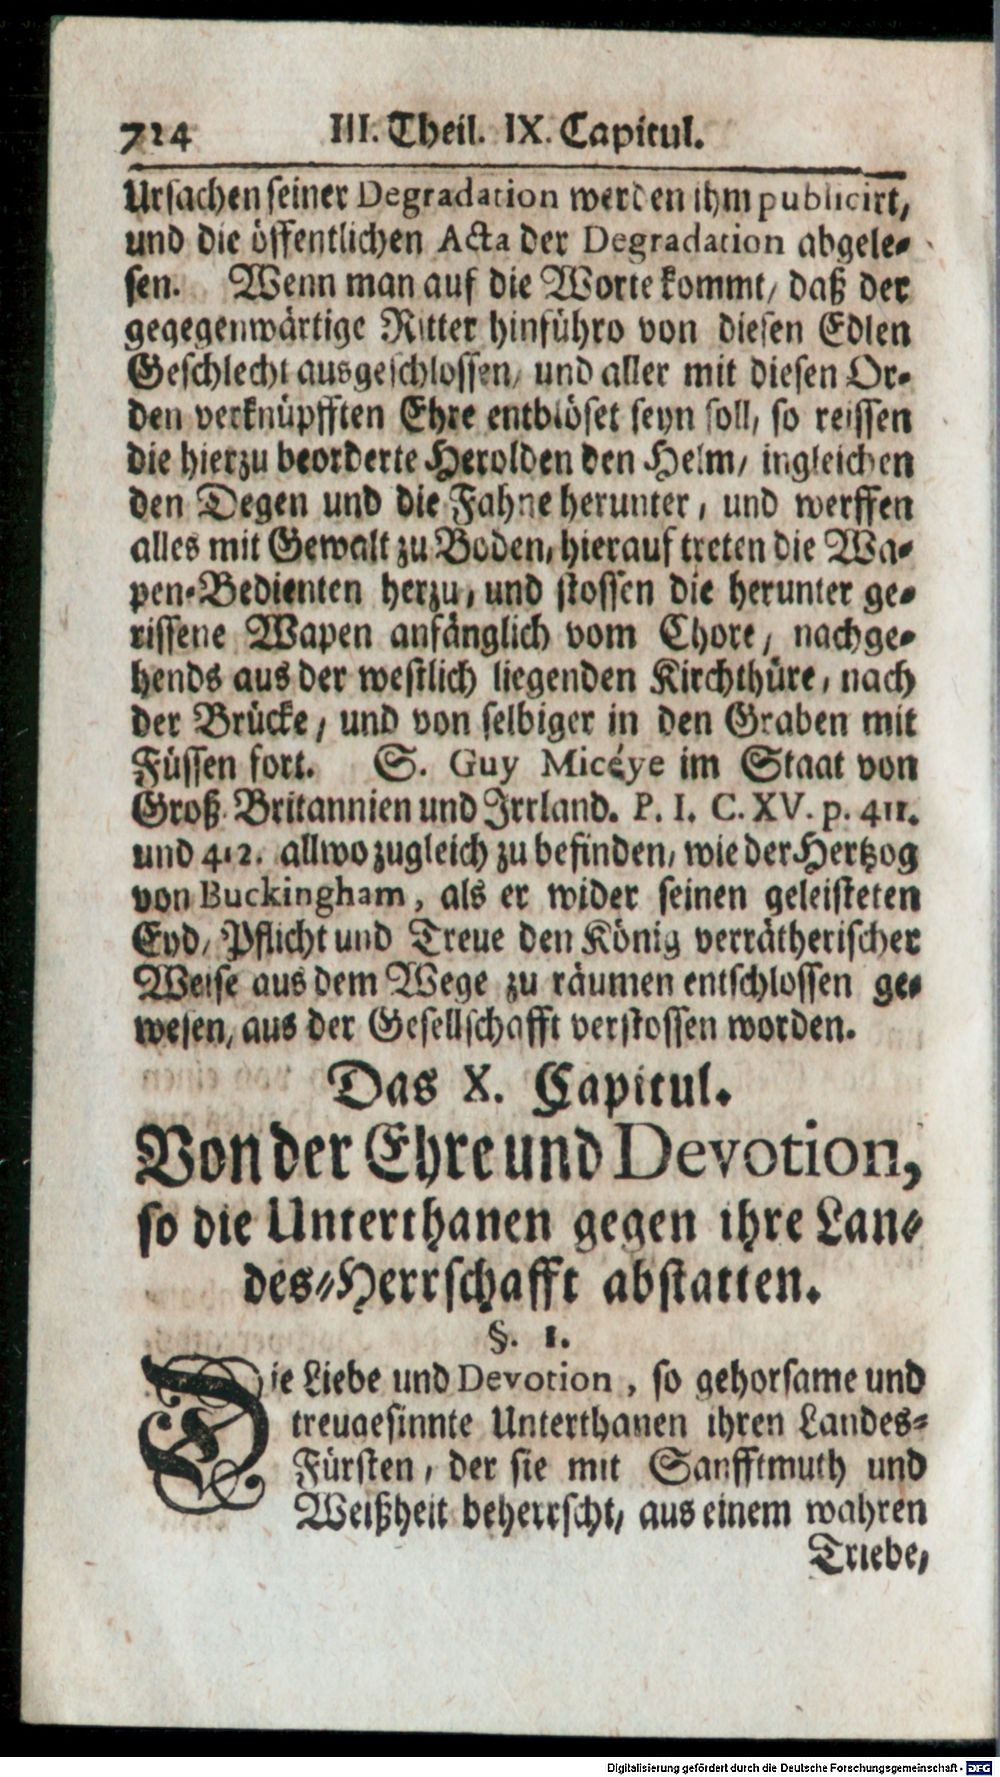 714 III. Theil. IX. Capitul.
Ursachen seiner Degradation werden ihm publicirt,
und die öffentlichen Acta der Degradation abgele-
sen. Wenn man auf die Worte kommt, daß der
gegegenwärtige Ritter hinführo von diesen Edlen
Geschlecht ausgeschlossen, und aller mit diesen Or-
den verknüpfften Ehre entblöset seyn soll, so reissen
die hierzu beorderte Herolden den Helm, ingleichen
den Degen und die Fahne herunter, und werffen
alles mit Gewalt zu Boden, hierauf treten die Wa-
pen-Bedienten herzu, und stossen die herunter ge-
rissene Wapen anfänglich vom Chore, nachge-
hends aus der westlich liegenden Kirchthüre, nach
der Brücke, und von selbiger in den Graben mit
Füssen fort. S. Guy Micéye im Staat von
Groß-Britannien und Irrland. P. I. C. XV. p. 411.
und 412. allwo zugleich zu befinden, wie der Hertzog
von Buckingham, als er wider seinen geleisteten
Eyd, Pflicht und Treue den König verrätherischer
Weise aus dem Wege zu räumen entschlossen ge-
wesen, aus der Gesellschafft verstossen worden.
Das X. Capitul.
Von der Ehre und Devotion,
so die Unterthanen gegen ihre Lan-
des-Herrschafft abstatten.
§. 1.
Die Liebe und Devotion, so gehorsame und
treugesinnte Unterthanen ihren Landes-
Fürsten, der sie mit Sanfftmuth und
Weißheit beherrscht, aus einem wahren
Triebe,
Digitalisierung gefördert durch die Deutsche Forschungsgemeinschaft - DFG